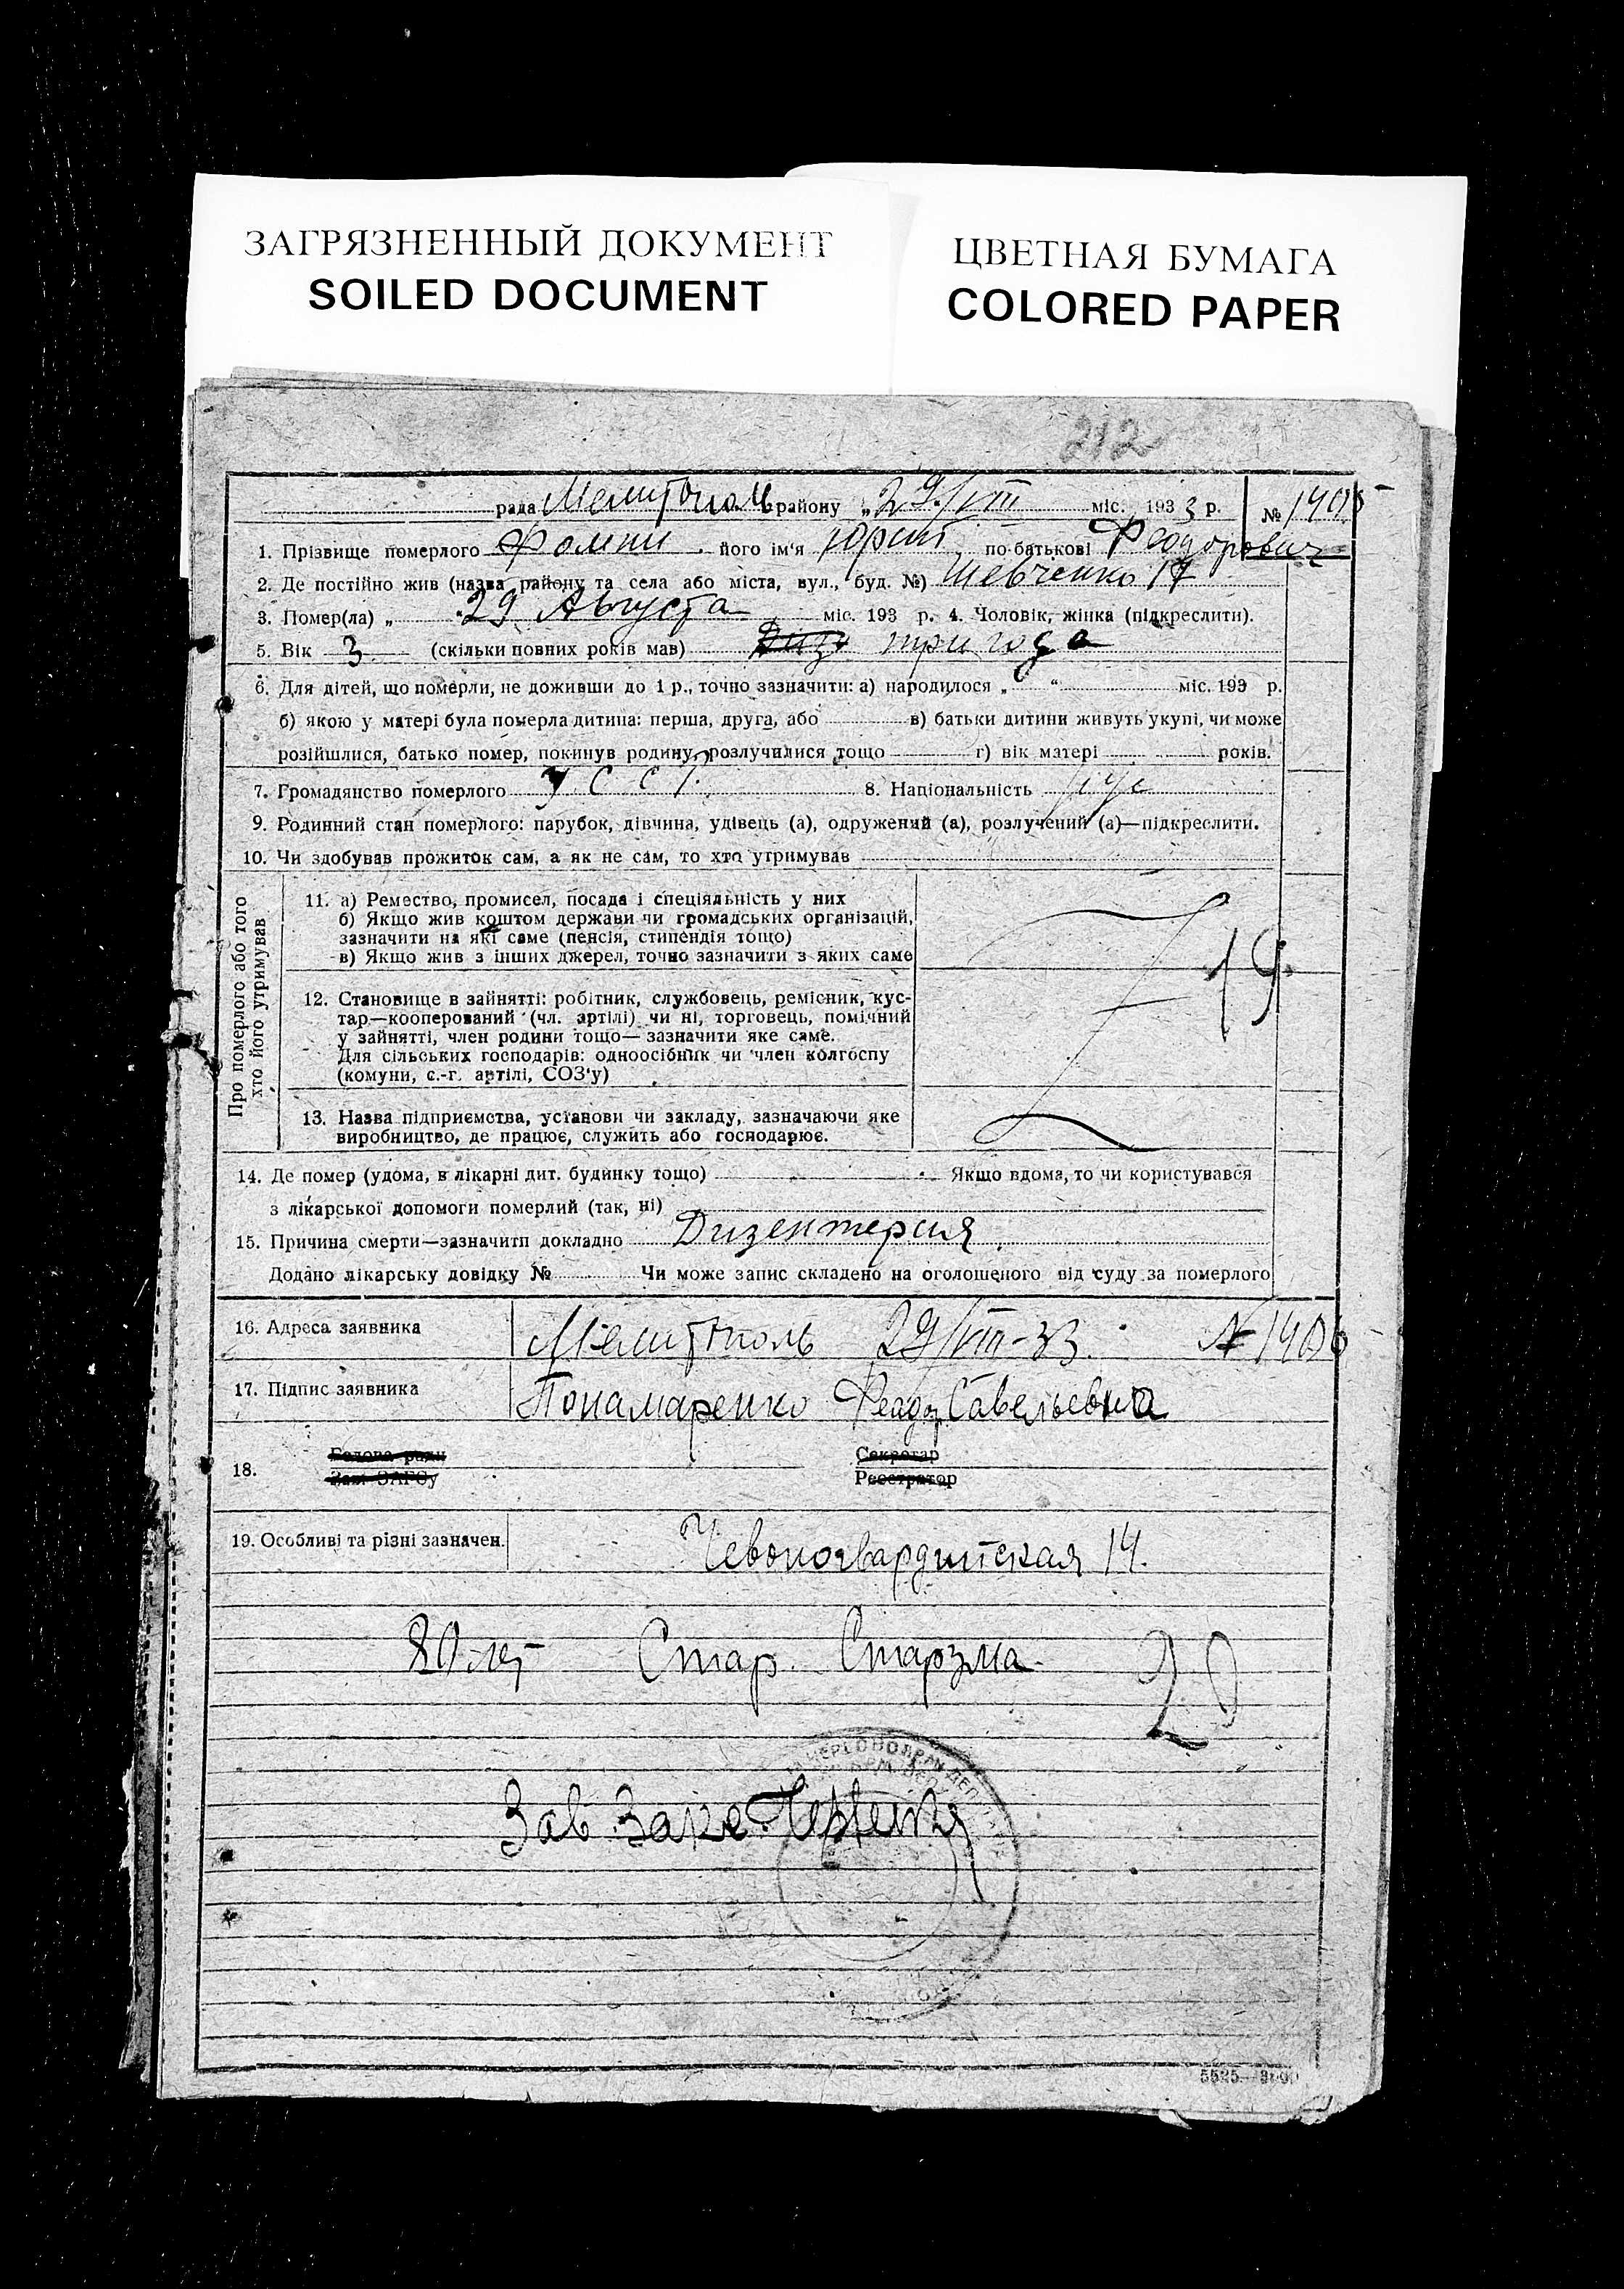 ЗАГРЯЗНЕННЫЙ ДОКУМЕНТ
SOILED DOCUMENT
ЦВЕТНАЯ БУМАГА
COLORED PAPER
212
рада Мелитополь району „29/VIII міс. 1933 р. № 1405
1. Прізвище померлого Фомин його ім'я Юрий по-батькові Феодорович
2. Де постійно жив (назва району та села або міста, вул., буд. №) Шевченко 17
3. Помер(ла) „29 Августа міс. 193 р. 4. Чоловік, жінка (підкреслити).
5. Вік 3 (скільки повних років мав) три года
6. Для дітей, що померли, не доживши до 1 р., точно зазначити: а) народилося „ “ міс. 193 р.
б) якою у матері була померла дитина: перша, друга, або в) батьки дитини живуть укупі, чи може
розійшлися, батько помер, покинув родину, розлучилися тощо г) вік матері років.
7. Громадянство померлого У С С Р. 8. Національність рус
9. Родинний стан померлого: парубок, дівчина, удівець (а), одружений (а), розлучений (а)—підкреслити.
10. Чи здобував прожиток сам, а як не сам, то хто утримував
Про померлого або того
хто його утримував
11. а) Ремество, промисел, посада і спеціяльність у них
б) Якщо жив коштом держави чи громадських організацій,
зазначити на які саме (пенсія, стипендія тощо)
в) Якщо жив з інших джерел, точно зазначити з яких саме
19
12. Становище в зайнятті: робітник, службовець, ремісник, кус-
тар—кооперований (чл. артілі) чи ні, торговець, помічний
у зайнятті, член родини тощо— зазначити яке саме.
Для сільських господарів: одноосібник чи член колгоспу
(комуни, с.-г. артілі, СОЗ'у)
13. Назва підприємства, установи чи закладу, зазначаючи яке
виробництво, де працює, служить або господарює.
14. Де помер (удома, в лікарні дит. будинку тощо) Якщо вдома, то чи користувався
з лікарської допомоги померлий (так, ні)
15. Причина смерти—зазначити докладно Дизентерия
Додано лікарську довідку № Чи може запис складено на оголошеного від суду за померлого
16. Адреса заявника Мелитополь 29/VIII-33. № 1406
17. Підпис заявника Понамаренко Феодз Савельевна
18. Голова ради Секретар
Зав ЗАГСу Реєстратор
19. Особливі та різні зазначен. Чевоногвардитская 14.
80 лет Стар. Старзма
20
Зав Загс
5525—8000